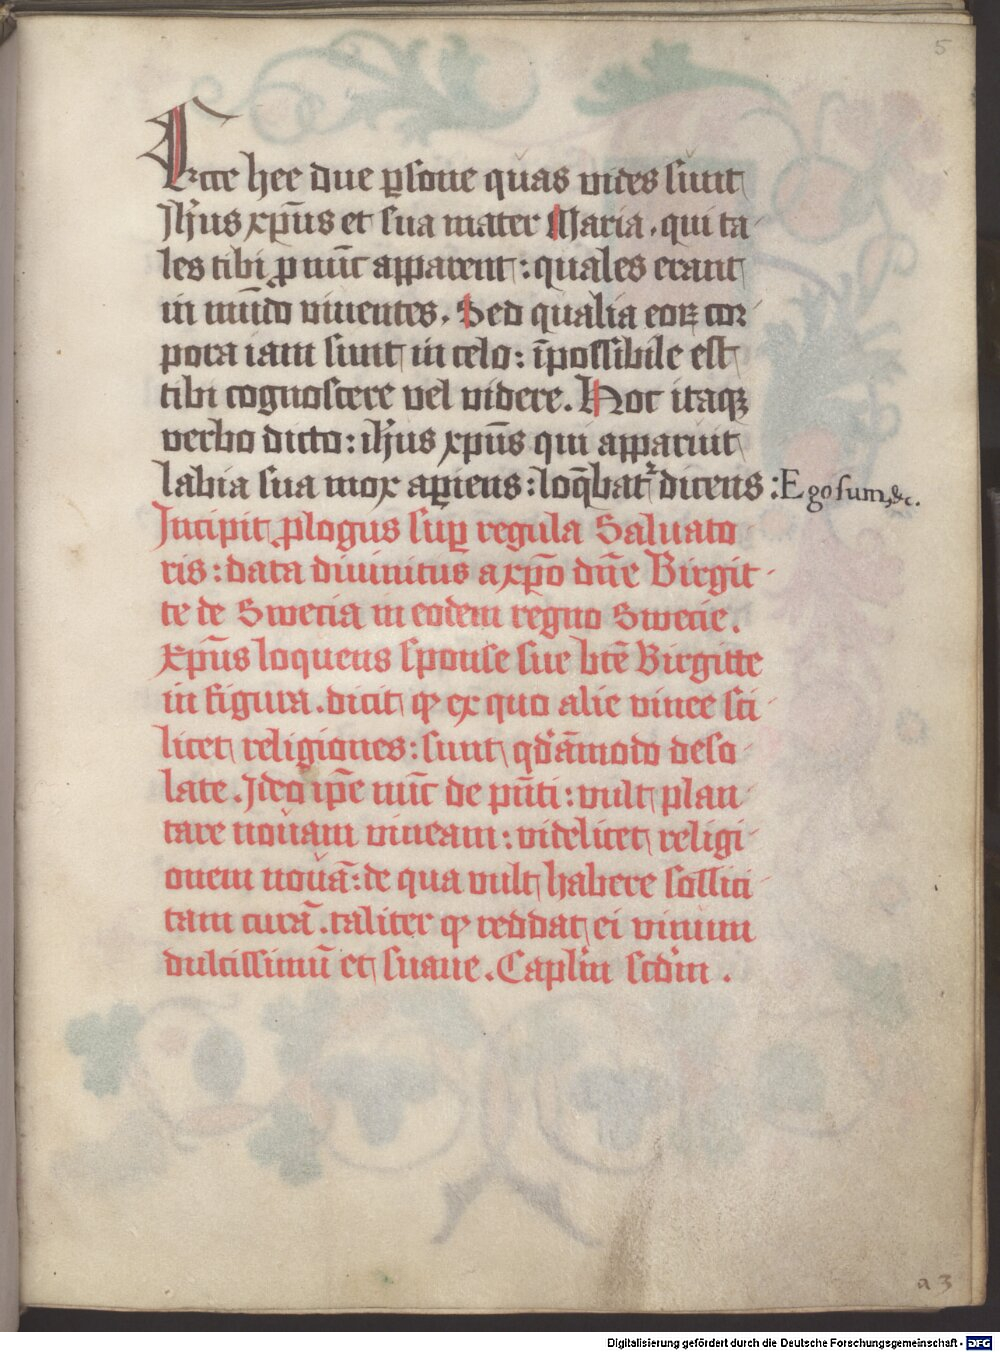 5
Ecce hee due ꝑsone quas vides sunt
Jħus xp̄us et sua mater Maria. qui ta
les tibi ꝓ nūc apparent : quales erant
in mūdo viuentes. Sed qualia eoꝝ cor
pora iam sunt in celo : īpossibile est
tibi cognoscere vel videre. Hoc itaqꝫ
verbo dicto : iħus xp̄us qui apparuit
labia sua mox aꝑiens : loq̄bat᷑ dicens : Ego sum, &c.
Incipit ꝓlogus suꝑ regula Saluato
ris : data diuinitus a xp̄o dn̄e Birgit
te de Swecia in eodem regno Swecie.
Xp̄us loquens sponse sue btē Birgitte
in figura. dicit ꝙ ex quo alie vinee sci
licet religiones : sunt qd̓āmodo deso
late. Ideo ip̄e nūc de pn̄ti : vult plan
tare nouam vineam : videlicet religi
onem nouā : de qua vult habere sollici
tam curā. taliter ꝙ reddat ei vinum
dulcissimū et suaue. Caplm̄ scdm̄.
a 3
Digitalisierung gefördert durch die Deutsche Forschungsgemeinschaft - DFG